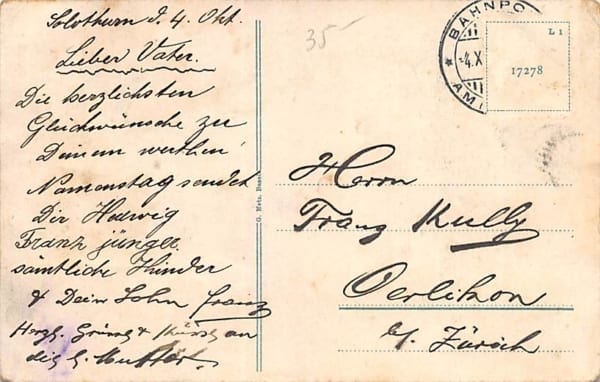 Solothurn d. 4. Okt.
Lieber Vater.
Die herzlichsten
Glückwünsche zu
Deinem werthen
Namenstag sendet
Dir Hedwig
Franz jünger
sämtliche Kinder
& Dein Sohn Franz
Herzl. Grüsse & Küsse an
die l. Mutter.
35-
BAHNPO
4.X
AM
L 1
17278
G. Metz, Basel
Herrn
Franz Kully
Oerlikon
b/. Zürich